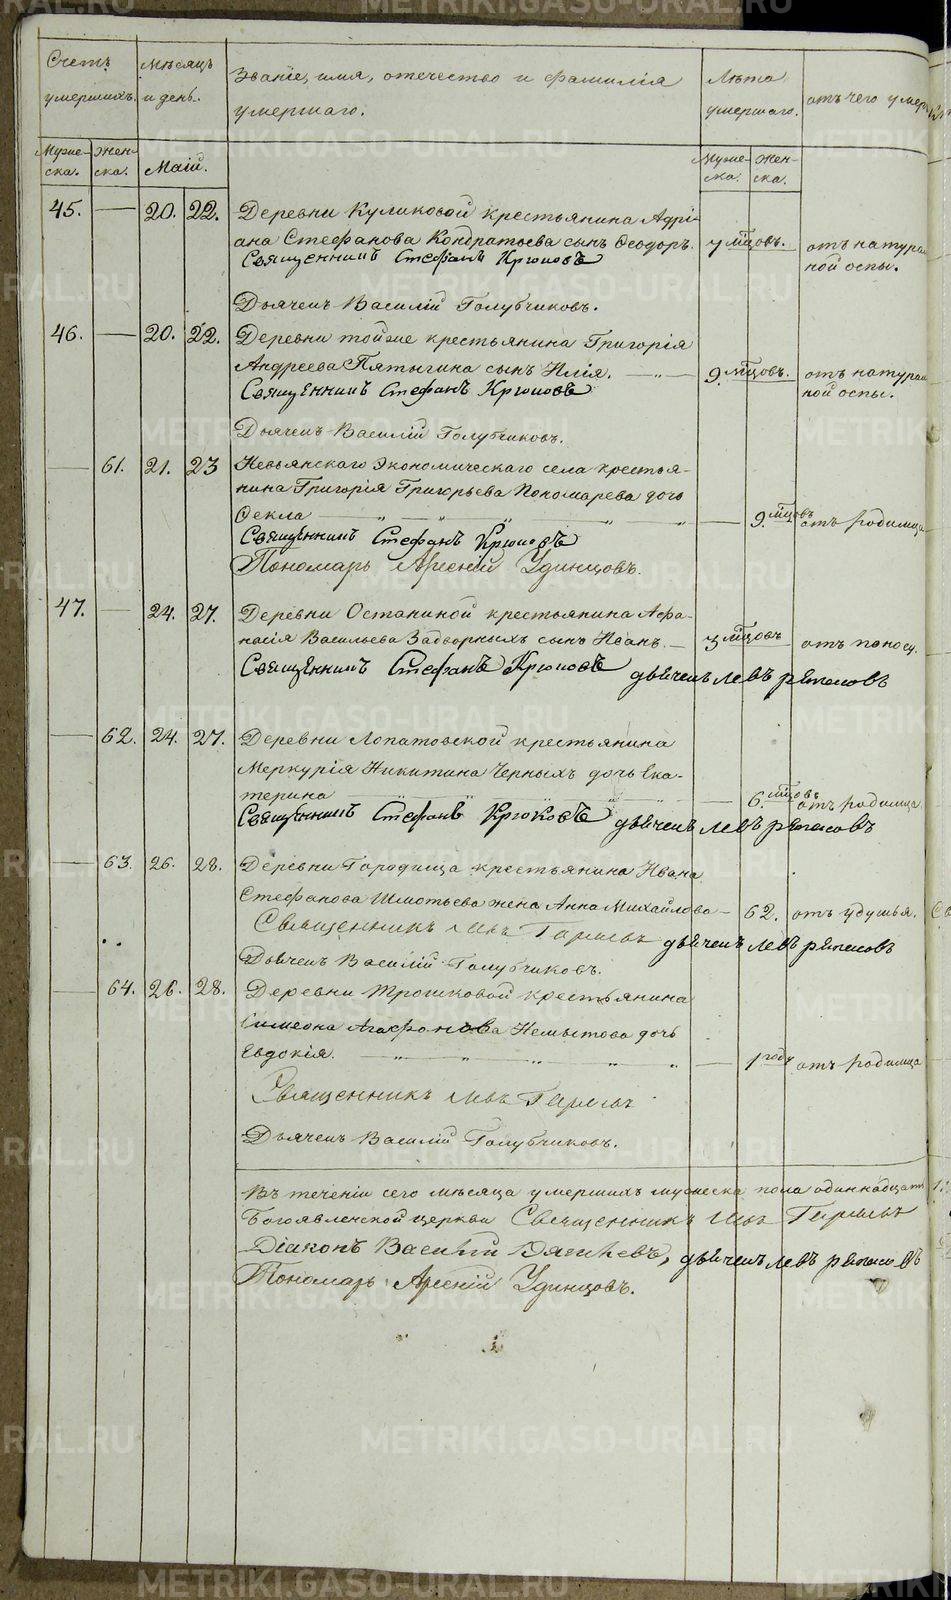 Счетъ умершихъ.
Мѣсяцъ и день.
Званіе, имя, отечество и фамилія
умершаго.
Лѣта умершаго.
отъ чего умер
Муже-ска.
Жен-ска.
Маій.
Муже-ска.
Жен-ска.
45. — 20. 22. Деревни Куликовой крестьянина Адрі-
ана Стефанова Кондратьева сынъ Ѳеодоръ. 7 мцовъ. отъ натурал
Священникъ Стефанъ Крюковъ ной оспы.
Дьячекъ Василій Голубчиковъ.
46. — 20. 22. Деревни тойже крестьянина Григорія
Андреева Пятыгина сынъ Илія. — 9. мцовъ. отъ натурал
Священникъ Стефанъ Крюковъ ной оспы.
Дьячекъ Василій Голубчиковъ.
— 61. 21. 23 Невьянскаго Экономическаго села крестья-
нина Григорія Григорьева Пономарева дочь
Ѳекла — 9. мцовъ отъ родимца
Священникъ Стефанъ Крюковъ
Пономарь Арсеній Удинцовъ.
47. — 24. 27. Деревни Останиной крестьянина Афа-
насія Васильева Задворныхъ сынъ Иванъ. — 3 мцовъ отъ поноса.
Священникъ Стефанъ Крюковъ дьячекъ левъ
— 62. 24. 27. Деревни Лопатовской крестьянина
Меркурія Никитина Черныхъ дочь Ека-
терина — 6. мцовъ отъ родимца
Священникъ Стефанъ Крюковъ дьячекъ левъ
— 63. 26. 28. Деревни Городища крестьянина Ивана
Стефанова Шмотьева жена Анна Михайлова — 62. отъ удушья.
Священникъ дьячекъ левъ
Дьячекъ Василій Голубчиковъ.
— 64. 26. 28. Деревни Трошковой крестьянина
Симеона Агафонова Немытова дочь
Евдокія. — 1 годъ отъ родимца
Священникъ
Дьячекъ Василій Голубчиковъ.
Въ теченіи сего мѣсяца умершихъ мужеска пола одиннадцать
Богоявленской церкви Священникъ
Діаконъ Василій дьячекъ левъ
Пономарь Арсеній Удинцовъ.
METRIKI.GASO-URAL.RU